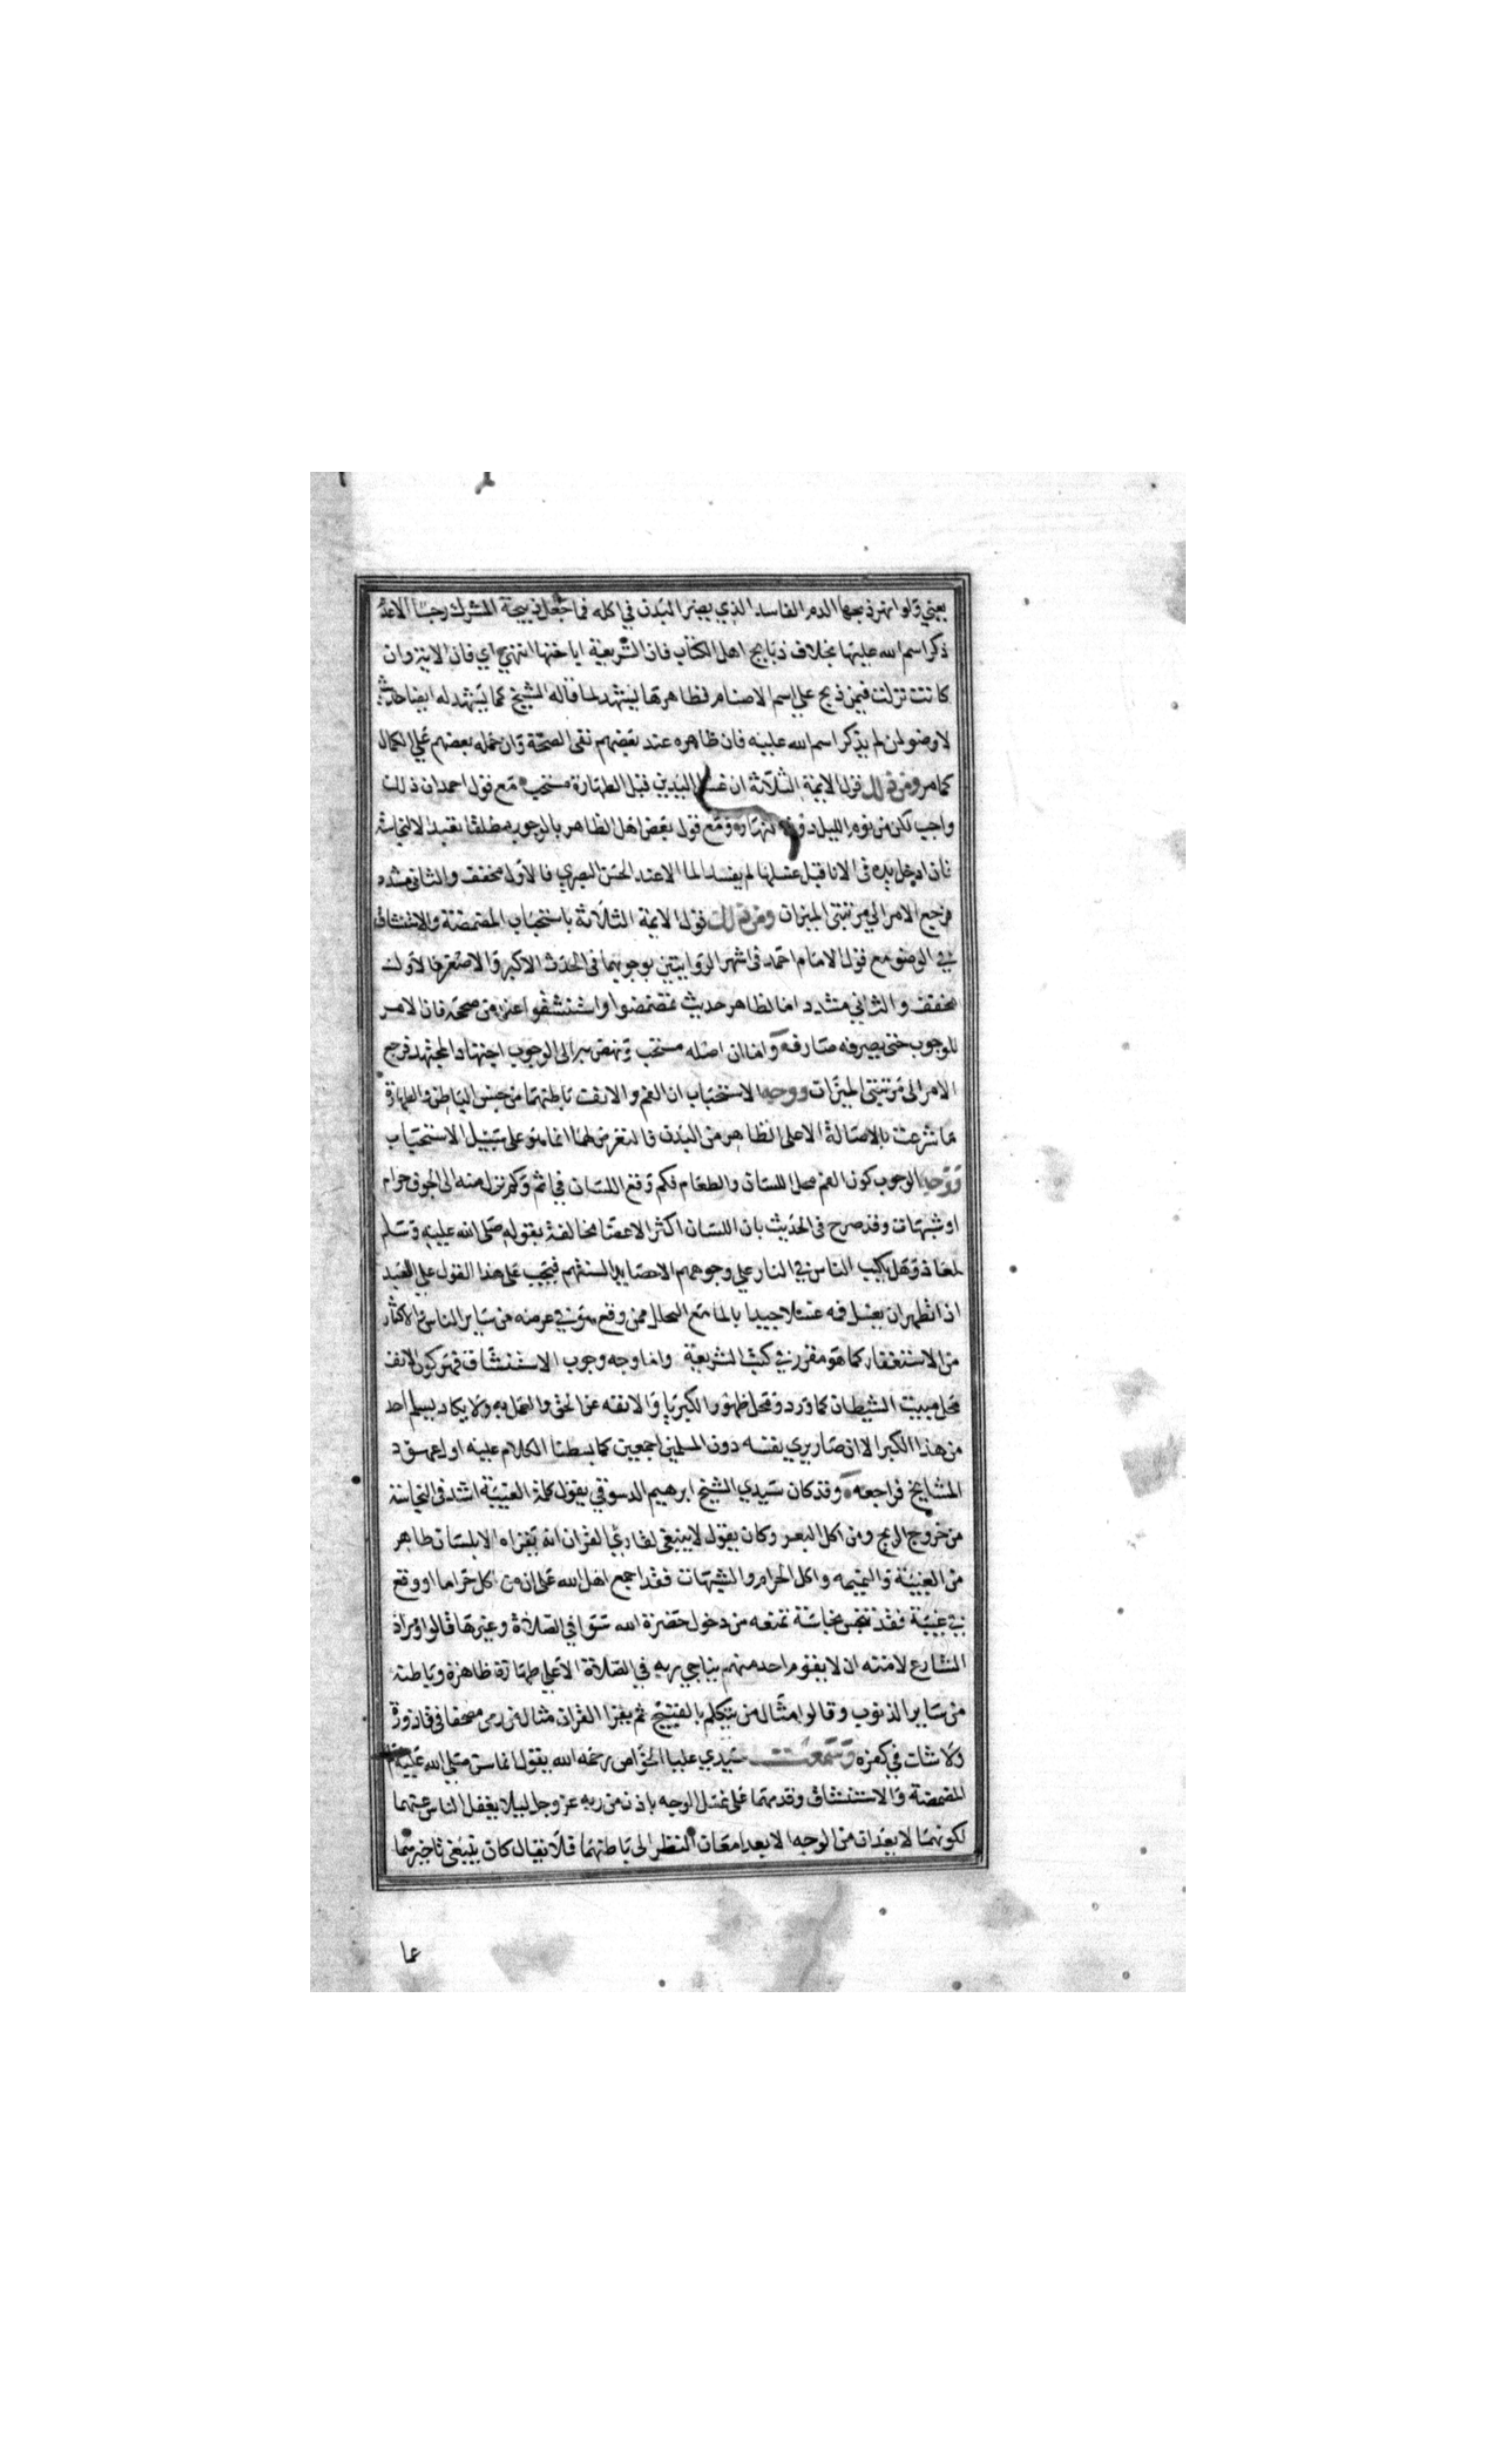 يعني ولو انهر ذبحها الدم الفاسد الذي يضر البدن في اكله فما جعل ذبيحة المشرك رجسا الا عدم
ذكر اسم الله عليها بخلاف ذبايح اهل الكتاب فان الشريعة اباحتها انتهى اي فان الاية وان
كانت نزلت فيمن ذبح على اسم الاصنام فظاهرها يشهد لما قاله الشيخ كما يشهد له ايضا حديث
لا وضو لمن لم يذكر اسم الله عليه فان ظاهره عند بعضهم نفى الصحة وان حمله بعضهم على الكمال
كما مر ومن ذلك قول الايمة الثلاثة ان غسل اليدين قبل الطهارة مستحب مع قول احمد ان ذلك
واجب لكن من نوم الليل دون نهاره ومع قول بعض اهل الظاهر بالوجوب مطلقا تعبدا لا لنجاسة
فان ادخل يده في الانا قبل غسلها لم يفسد الما الا عند الحسن البصري فالاول مخفف والثاني مشدد
فرجع الامر الى مرتبتى الميزان ومن ذلك قول الايمة الثلاثة باستحباب المضمضة والاستنشاق
في الوضو مع قول الامام احمد في اشهر الروايتين بوجوبهما في الحدث الاكبر والاصغر فالاول
مخفف والثاني مشدد اما لظاهر حديث تمضمضوا واستنشقوا على من صححه فان الامر
للوجوب حتى يصرفه صارف واما ان اصله مستحب ونهض به الى الوجوب اجتهاد المجتهد فرجع
الامر الى مرتبتى الميزان ووجه الاستحباب ان الفم والانف باطنهما من جنس الباطن والطهارة
ما شرعت بالاصالة الا على الظاهر من البدن فالتعرض لهما انما هو على سبيل الاستحباب
ووجه الوجوب كون الفم محل اللسان والطعام فكم وقع اللسان في اثم وكم نزل منه الى الجوف حرام
او شبهات وقد صرح في الحديث بان اللسان اكثر الاعضا مخالفة بقوله صلى الله عليه وسلم
لمعاذ وهل يكب الناس في النار على وجوههم الا حصايد السنتهم فيجب على هذا القول على العبد
اذا تطهر ان يغسل فمه غسلا جيدا بالما مع التحلل ممن وقع هو في عرضه من ساير الناس والاكثار
من الاستغفار كما هو مقرر في كتب الشريعة واما وجه وجوب الاستنشاق فهو كون الانف
محل مبيت الشيطان كما ورد ومحل ظهور الكبريا والانفه عن الحق والعمل به ولا يكاد يسلم احد
من هذا الكبر الا ان صار يري نفسه دون المسلمين اجمعين كما بسطنا الكلام عليه اول عهود
المشايخ فراجعه وقد كان سيدي الشيخ ابرهيم الدسوقي يقول كلمة الغيبة اشد في النجاسة
من خروج الريح ومن اكل البعر وكان يقول لا ينبغى لقاريء القران انه يقراه الا بلسان طاهر
من الغيبة والنميمه واكل الحرام والشبهات فقد اجمع اهل الله على ان من اكل حراما او وقع
في غيبة فقد تنجس نجاسة تمنعه من دخول حضرة الله سوا في الصلاة وغيرها قالوا ومراد
الشارع لامته ان لا يقوم احد منهم يناجي ربه في الصلاة الا على طهارة ظاهرة وباطنة
من ساير الذنوب وقالوا مثال من يتكلم بالقبيح ثم يقرا القران مثال من رمى مصحفا في قاذورة
ولا شات في كفره وسمعت سيدي عليا الخواص رحمه الله يقول انما سن صلى الله عليه وسلم
المضمضة والاستنشاق وقدمهما على غسل الوجه باذن من ربه عز وجل ليلا يغفل الناس عنهما
لكونهما لا يعدان من الوجه الا بعد امعان النظر الى باطنهما فلا يقال كان ينبغى تاخيرهما
عما